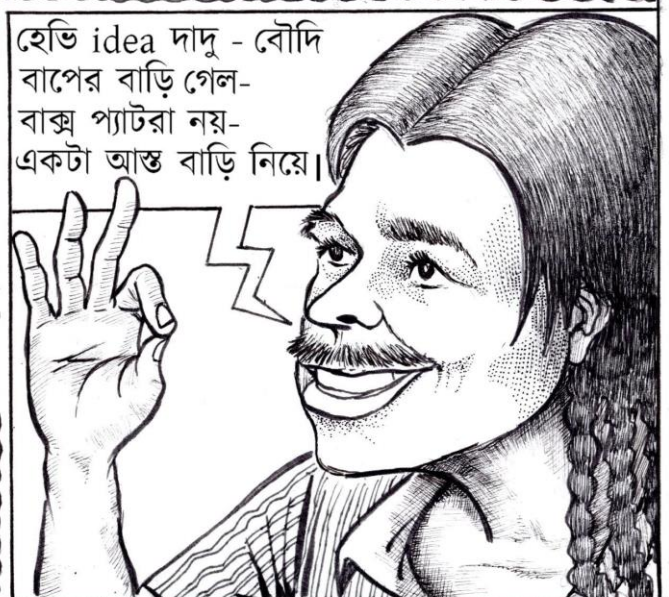 হেভি idea দাদু - বৌদি
বাপের বাড়ি গেল-
বাক্স প্যাটরা নয়-
একটা আস্ত বাড়ি নিয়ে।